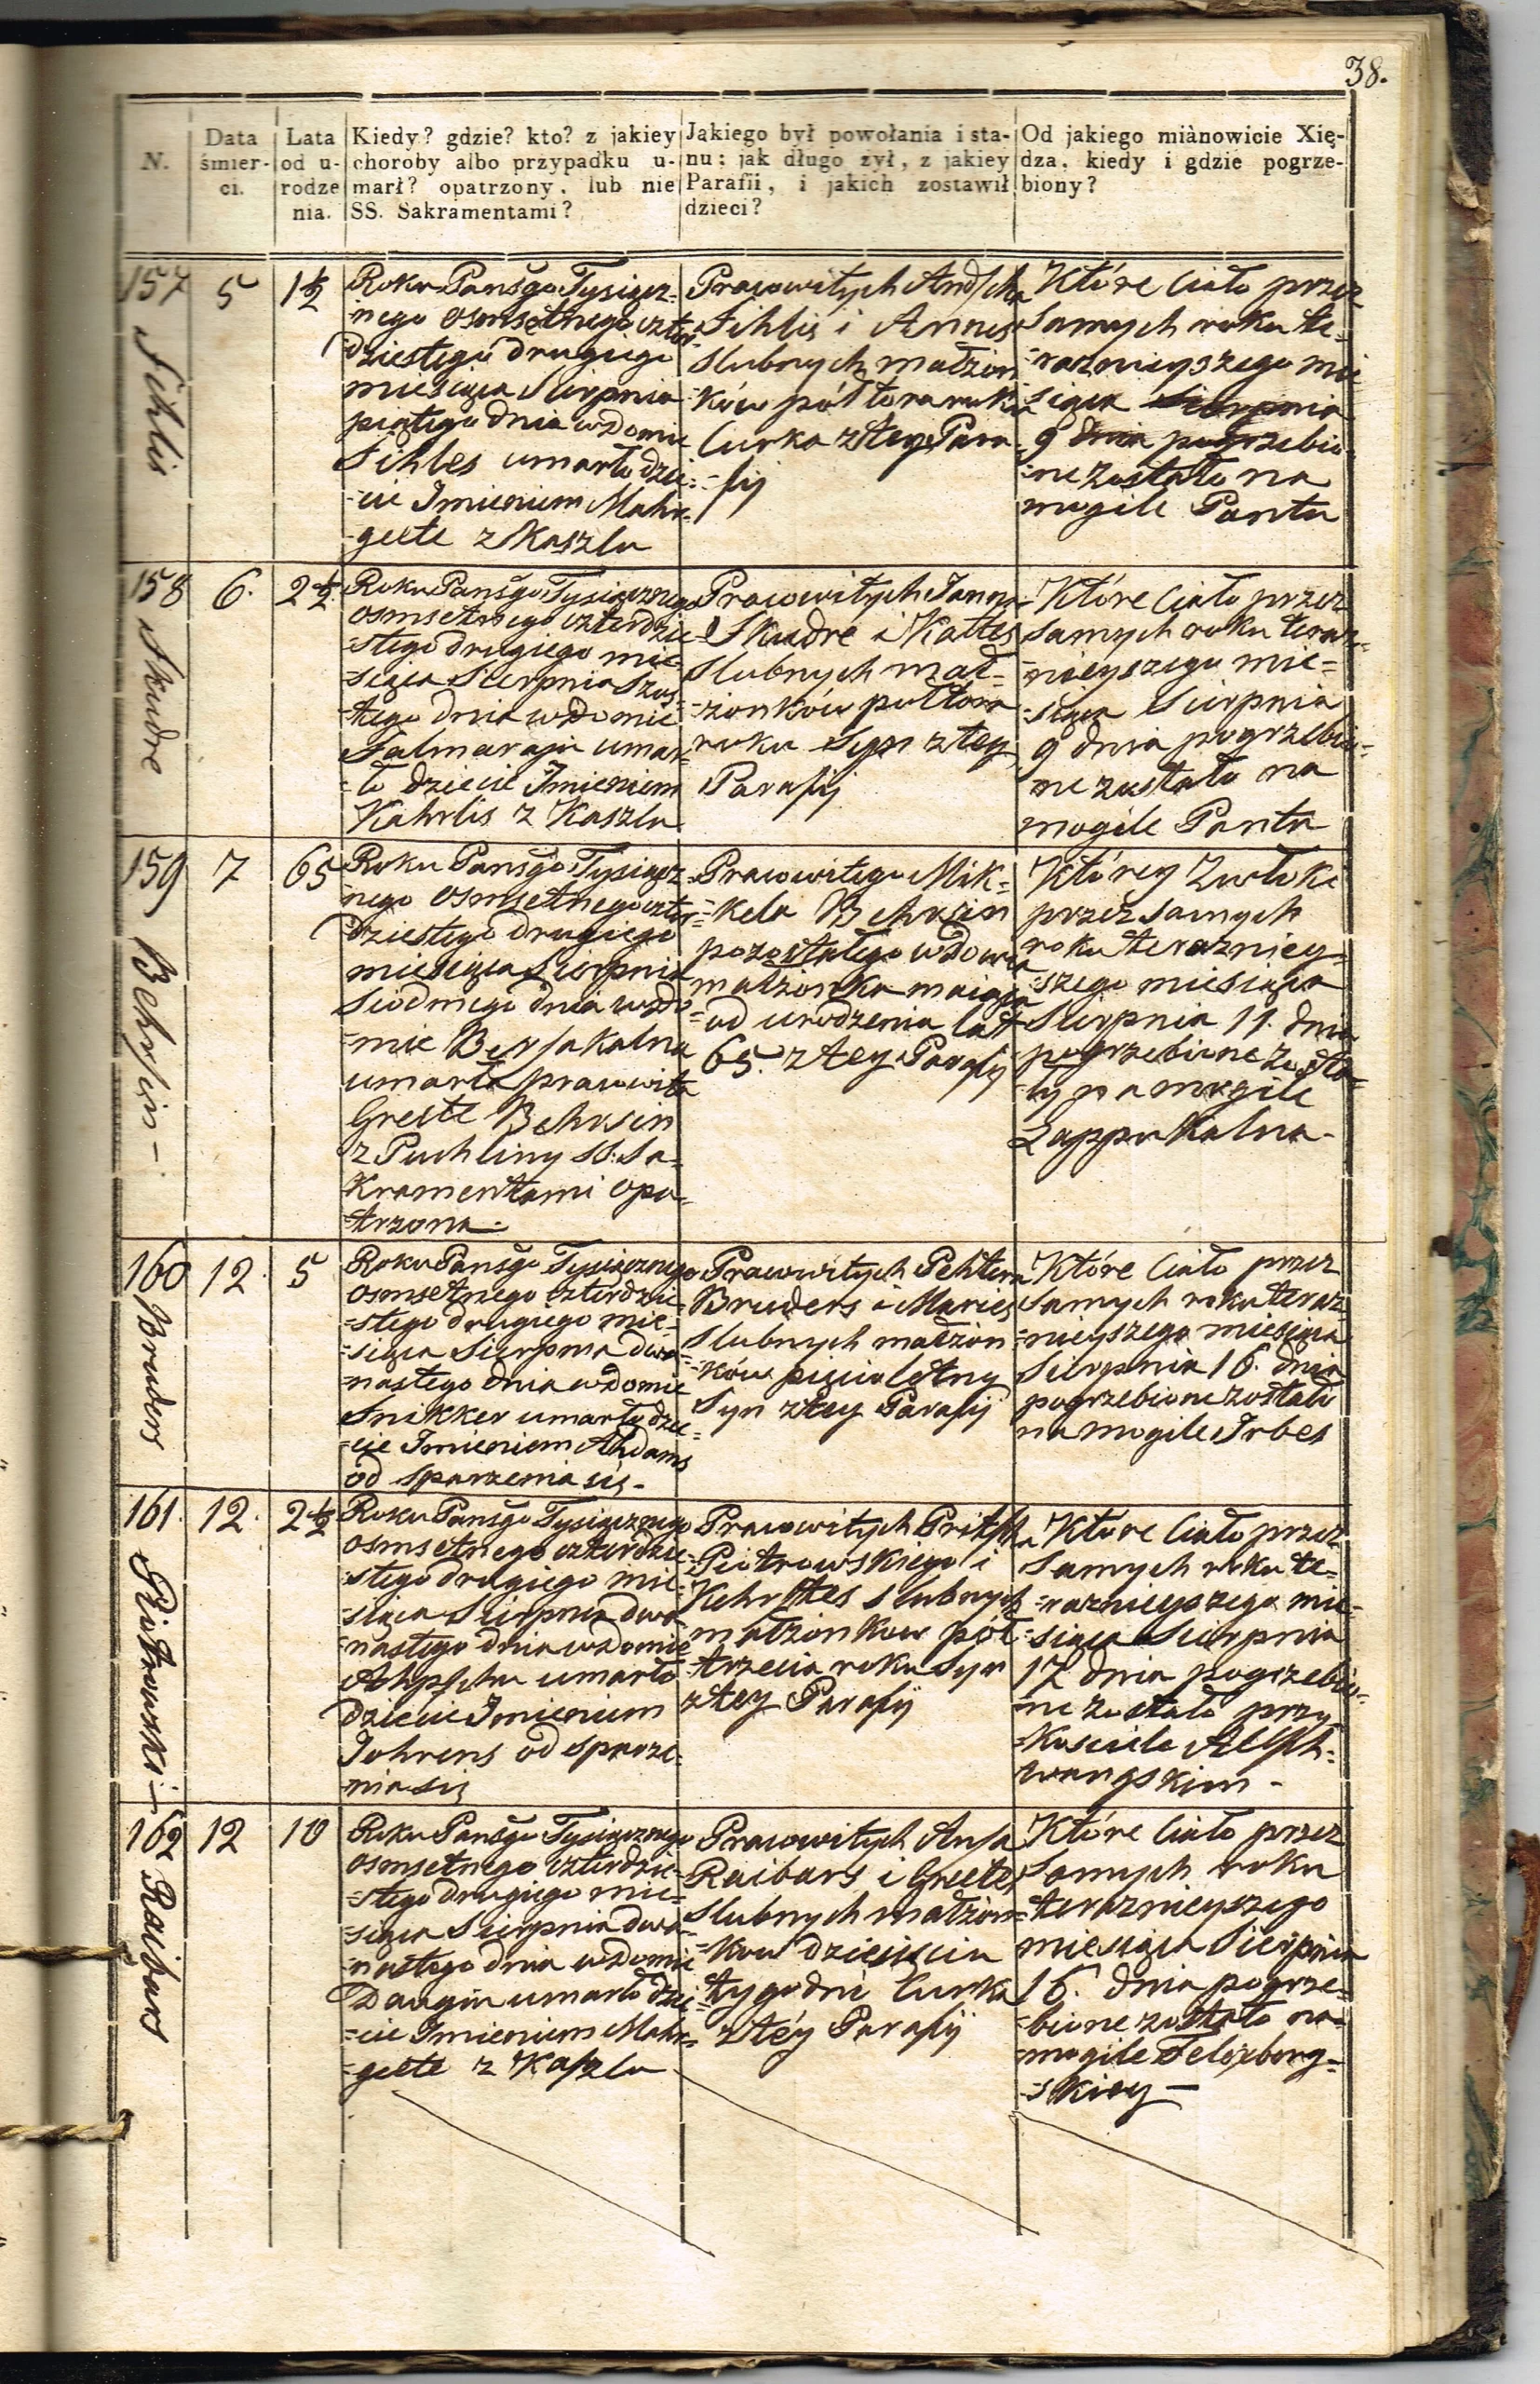 38.
N.
Data śmier-ci.
Lata od u-rodze nia.
Kiedy? gdzie? kto? z jakiey
choroby albo przypadku u-
marł? opatrzony, lub nie
SS. Sakramentami?
Jakiego był powołania i sta-
nu: jak długo żył, z jakiey
Parafii, i jakich zostawił
dzieci?
Od jakiego miànowicie Xię-
dza, kiedy i gdzie pogrze-
biony?
157
Sihlis
5
1½
Roku Pańsgo Tysiącz-
=nego osmsetnego czter-
dziestego drugiego
miesiąca Sierpnia
piątego dnia w Domie
Sihles umarło dzie=
=cie Imieniem Mahr-
-geete z Kaszlu
Prawowitych And
Sihlis i Annes
slubnych małżon
=ków pół tora roku
Curka z tey Para
=fij
Które Ciało przez
samych roku te=
=raznieyszego mie
siąca Sierpnia
9 dnia pogrzebio
=ne zostało na
mogile Pantu
158
Skudre
6.
2½
Roku Pańsgo Tysiącznego
osmsetnego czterdzie
=stego drugiego mie=
=siąca Sierpnia Szos
=tego dnia w Domie
umar=
=ło dziecie Imieniem
Kahrlis z Kaszlu
Prawowitych Janna
Skudre i Kattes
slubnych mał=
=żonków półtora
roku Syn z tey
Parafij
Które Ciało przez
samych roku teraz=
=nieyszego mie=
=siąca Sierpnia
9 dnia pogrzebio=
ne zostało na
mogile Pantu
159
Behrsin -
7
65
Roku Pańsgo Tysiącz
=nego osmsetnego czter
dziestego drugiego
miesiąca Sierpnia
siodmego dnia w Do
=mie Bersakalna
umarła prawowita
Greete Behrsin
z Puchliny SS: Sa=
kramentami opa=
trzona.-
Prawowitego Mik=
=kela Behrsin
pozostałego wdowca
małżonka maiąca
=od urodzenia lat
65. z tey Parafij
Którey Zwłoki
przez samych
roku terazniey=
szego miesiąca
Sierpnia 11. dnia
pogrzebione zosta=
=ły na mogile
Lappu Kalna-
160
Bruders
12.
5
Roku Pańsgo Tysiącznego
osmsetnego czterdzie=
=stego drugiego mie=
=siąca Sierpnia dwa=
=nastego dnia w Domie
Snikker umarło dzie=
=cie Imieniem Ahdams
od sparzenia się.-
Prawowitych Pehtera
Bruders i Maries
slubnych małżon
=ków pięcioletny
Syn z tey Parafij
Które Ciało przez
samych roku teraz
=nieyszego miesiąca
Sierpnia 16. dnia
pogrzebione zostało
na mogile Irbes
161.
Piotrowski -
12.
2½
Roku Pańsgo Tysiącznego
osmsetnego czterdzie=
=stego drugiego mie=
=siąca Sierpnia dwa=
=nastego dnia w Domie
umarło
dziecie Imieniem
Jahrens od sparze=
nia się
Prawowitych
Piotrowskiego i
slubnych
małżonkow pół
=trzecia roku Syn
z tey Parafij
Które Ciało przez
samych roku te=
=raznieyszego mie=
=siąca Sierpnia
17 dnia pogrzebio=
=ne zostało przy
=Kosciele Altsch=
wangskim -
162
Raibars
12
10
Roku Pańsgo Tysiącznego
osmsetnego czterdzie=
=stego drugiego mie=
=siąca Sierpnia dwa=
=nastego dnia w Domie
Daugin umarło dzie
=cie Imieniem Mahr=
=geete z Kaszlu
Prawowitych Ansa
Raibars i Greetes
slubnych małżon=
=kow dziesięciu
tygodni Curka
z téy Parafij
Które Ciało przez
samych roku
teraznieyszego
miesiąca Sierpnia
16. dnia pogrze=
=bione zostało na
mogile Felixberg=
=skiey -